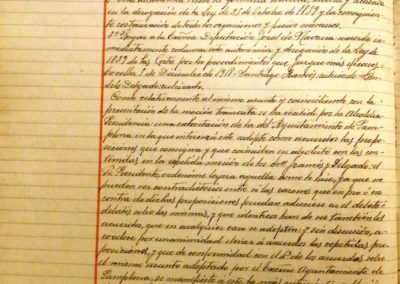 en la derogación de la Ley de 25 de Octubre de 1839 y la consiguiente
restauración de todo los regímenes y
3º Rogar a la Excma Diputación Foral de Navarra acuerde in-
mediatamente reclamar esta autonomía y derogación de la Ley de
1839 de las Cortes por los procedimientos que juzgue más eficaces
1 de Diciembre de 1918 = Santiago Ramos; rubricado =
Delgado; rubricado.
Como relativamente al mismo asunto y coincidiendo con la
presentación de la moción transcrita se ha recibido por la Alcaldía
Presidencia una del Ayuntamiento de Pam-
plona en la que interesa este adopte como acuerdos las propo-
siciones que consigna y que coinciden en absoluto con las con-
tenidas en la moción de los Sres Ramos y Delgado, el
Sr. Presidente, ordenóme leyera aquella como lo hice, ya que no
pueden ser contradictorias entre si las razones que en pro ó en
contra de dichas proposiciones pueden aducirse en el debate ó
debates sobre las mismas, y que identicos han de ser también los
acuerdos, que en cualquier caso se adopten; y sin discusión, a-
cordose por unanimidad elevar á acuerdos las repetidas pro-
posiciones, y que de conformidad con el 4º de los acuerdos sobre
el mismo asunto adoptado por el Excmo Ayuntamiento de
Pamplona, se manifieste a este